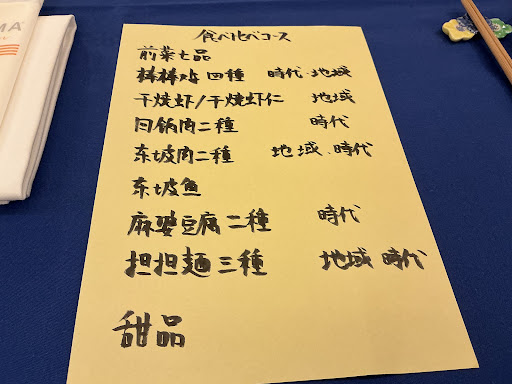 MA
食べ比べコース
前菜七品
棒棒鸡 四種 時代・地域
干焼虾/干焼虾仁 地域
回锅肉二種 時代
东坡肉二種 地域・時代
东坡鱼
麻婆豆腐二種 時代
担担麺三種 地域 時代
甜品